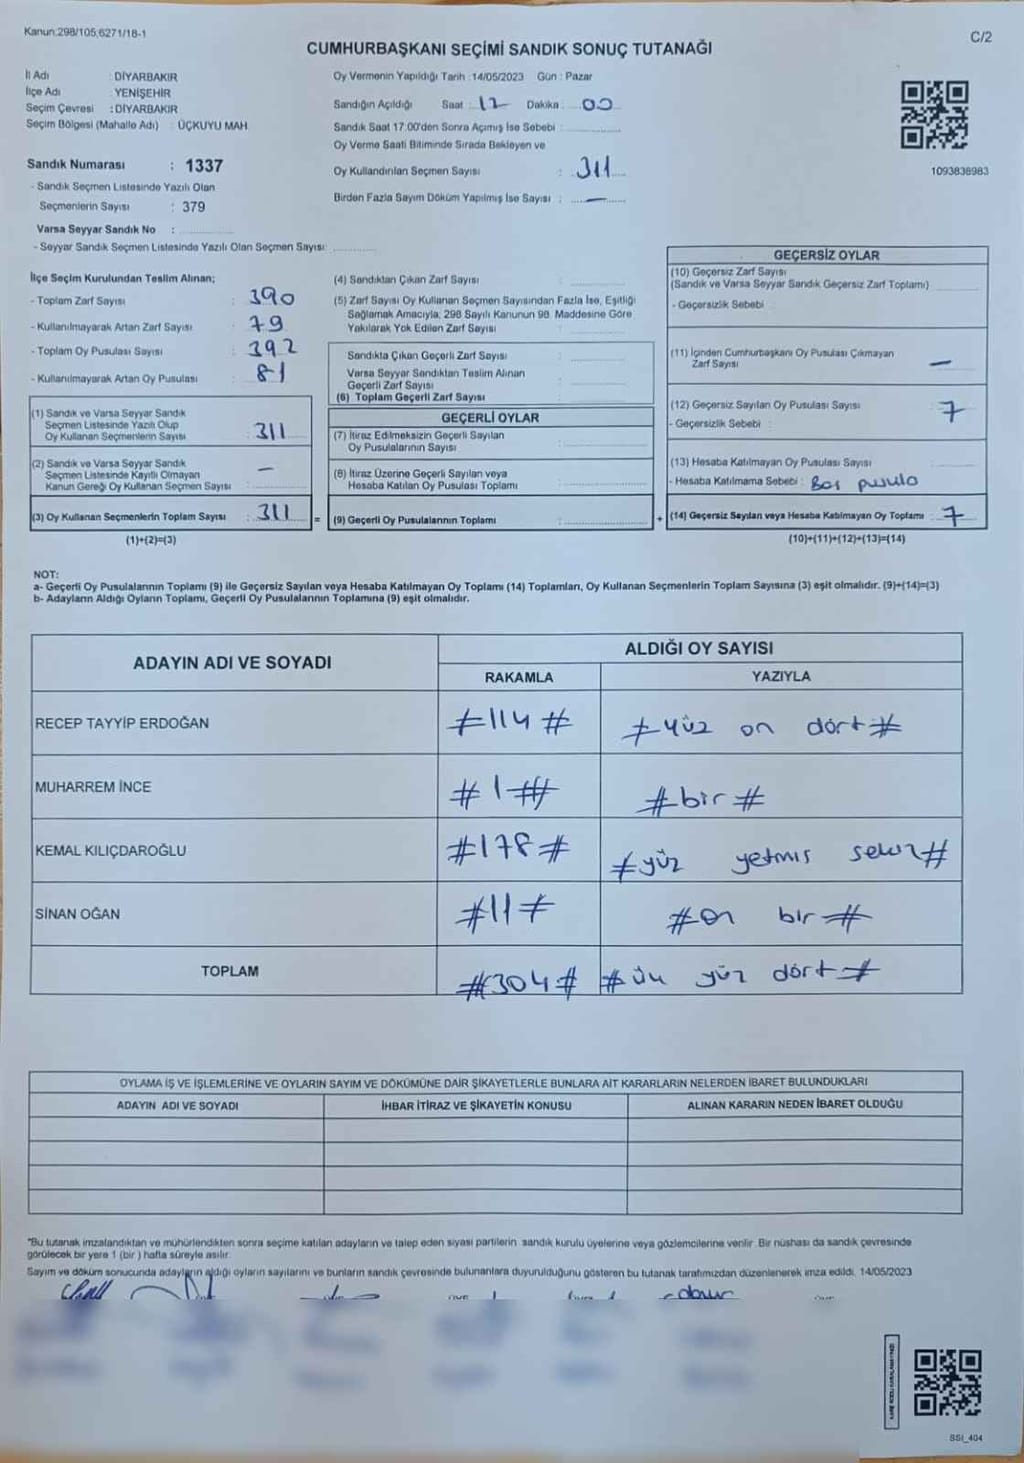 Kanun:298/105,6271/18-1
C/2
CUMHURBAŞKANI SEÇİMİ SANDIK SONUÇ TUTANAĞI
İl Adı : DİYARBAKIR
İlçe Adı : YENİŞEHİR
Seçim Çevresi : DİYARBAKIR
Seçim Bölgesi (Mahalle Adı) : ÜÇKUYU MAH
Sandık Numarası : 1337
- Sandık Seçmen Listesinde Yazılı Olan
Seçmenlerin Sayısı : 379
Varsa Seyyar Sandık No :
- Seyyar Sandık Seçmen Listesinde Yazılı Olan Seçmen Sayısı:
Oy Vermenin Yapıldığı Tarih :14/05/2023 Gün : Pazar
Sandığın Açıldığı Saat : 17 Dakika : 00
Sandık Saat 17.00'den Sonra Açımış İse Sebebi :
Oy Verme Saati Bitiminde Sırada Bekleyen ve
Oy Kullandırılan Seçmen Sayısı : 311
Birden Fazla Sayım Döküm Yapılmış İse Sayısı : —
1093838983
İlçe Seçim Kurulundan Teslim Alınan;
- Toplam Zarf Sayısı : 390
- Kullanılmayarak Artan Zarf Sayısı : 79
- Toplam Oy Pusulası Sayısı : 392
- Kullanılmayarak Artan Oy Pusulası : 81
(1) Sandık ve Varsa Seyyar Sandık
Seçmen Listesinde Yazılı Olup
Oy Kullanan Seçmenlerin Sayısı : 311
(2) Sandık ve Varsa Seyyar Sandık
Seçmen Listesinde Kayıtlı Olmayan
Kanun Gereği Oy Kullanan Seçmen Sayısı : —
(3) Oy Kullanan Seçmenlerin Toplam Sayısı : 311 =
(1)+(2)=(3)
(4) Sandıktan Çıkan Zarf Sayısı :
(5) Zarf Sayısı Oy Kullanan Seçmen Sayısından Fazla İse, Eşitliği
Sağlamak Amacıyla; 298 Sayılı Kanunun 98. Maddesine Göre
Yakılarak Yok Edilen Zarf Sayısı :
Sandıkta Çıkan Geçerli Zarf Sayısı :
Varsa Seyyar Sandıktan Teslim Alınan
Geçerli Zarf Sayısı :
(6) Toplam Geçerli Zarf Sayısı :
GEÇERLİ OYLAR
(7) İtiraz Edilmeksizin Geçerli Sayılan
Oy Pusulalarının Sayısı :
(8) İtiraz Üzerine Geçerli Sayılan veya
Hesaba Katılan Oy Pusulası Toplamı :
(9) Geçerli Oy Pusulalarının Toplamı : +
GEÇERSİZ OYLAR
(10) Geçersiz Zarf Sayısı
(Sandık ve Varsa Seyyar Sandık Geçersiz Zarf Toplamı)
- Geçersizlik Sebebi :
(11) İçinden Cumhurbaşkanı Oy Pusulası Çıkmayan
Zarf Sayısı —
(12) Geçersiz Sayılan Oy Pusulası Sayısı : 7
- Geçersizlik Sebebi :
(13) Hesaba Katılmayan Oy Pusulası Sayısı :
- Hesaba Katılmama Sebebi : Bos pusula
(14) Geçersiz Sayılan veya Hesaba Katılmayan Oy Toplamı : 7
(10)+(11)+(12)+(13)=(14)
NOT:
a- Geçerli Oy Pusulalarının Toplamı (9) ile Geçersiz Sayılan veya Hesaba Katılmayan Oy Toplamı (14) Toplamları, Oy Kullanan Seçmenlerin Toplam Sayısına (3) eşit olmalıdır. (9)+(14)=(3)
b- Adayların Aldığı Oyların Toplamı, Geçerli Oy Pusulalarının Toplamına (9) eşit olmalıdır.
ADAYIN ADI VE SOYADI
ALDIĞI OY SAYISI
RAKAMLA YAZIYLA
RECEP TAYYİP ERDOĞAN #114# #yüz on dört#
MUHARREM İNCE #1# #bir#
KEMAL KILIÇDAROĞLU #178# #yüz yetmis sekiz#
SİNAN OĞAN #11# #on bir#
TOPLAM #304# #üç yüz dört#
OYLAMA İŞ VE İŞLEMLERİNE VE OYLARIN SAYIM VE DÖKÜMÜNE DAİR ŞİKAYETLERLE BUNLARA AİT KARARLARIN NELERDEN İBARET BULUNDUKLARI
ADAYIN ADI VE SOYADI İHBAR İTİRAZ VE ŞİKAYETİN KONUSU ALINAN KARARIN NEDEN İBARET OLDUĞU
"Bu tutanak imzalandıktan ve mühürlendikten sonra seçime katılan adayların ve talep eden siyasi partilerin sandık kurulu üyelerine veya gözlemcilerine verilir. Bir nüshası da sandık çevresinde
görülecek bir yere 1 (bir ) hafta süreyle asılır.
Sayım ve döküm sonucunda adayların aldığı oyların sayılarını ve bunların sandık çevresinde bulunanlara duyurulduğunu gösteren bu tutanak tarafımızdan düzenlenerek imza edildi. 14/05/2023
SSI_404